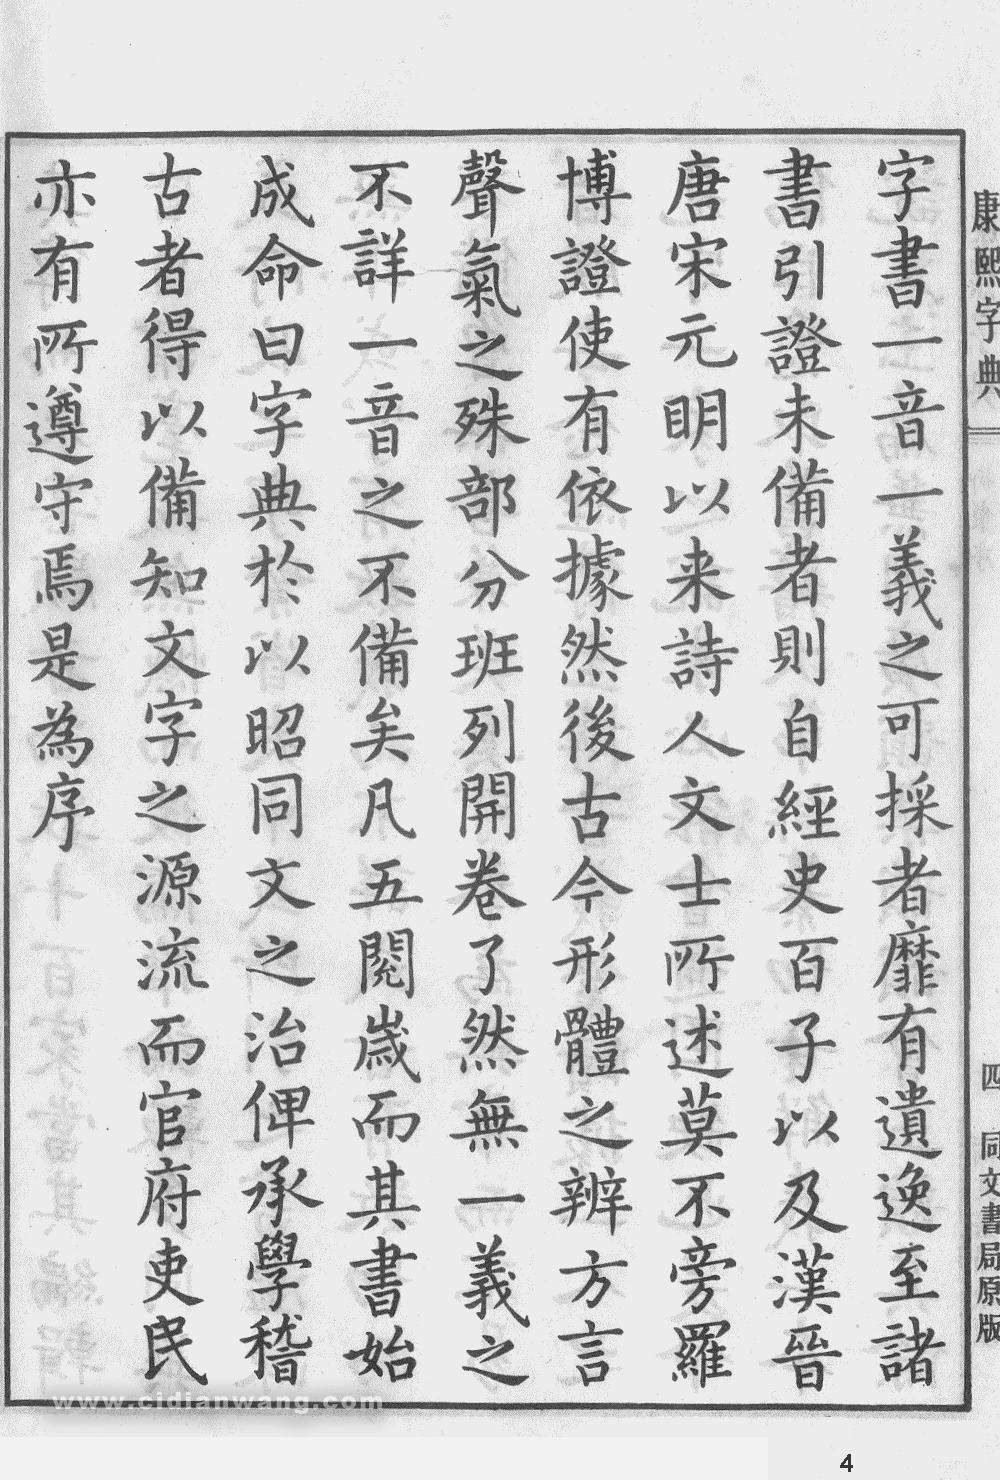 康熙字典
四 同文書局原版
字書一音一義之可採者靡有遺逸至諸
書引證未備者則自經史百子以及漢晉
唐宋元明以来詩人文士所述莫不旁羅
博證使有依據然後古今形體之辨方言
聲氣之殊部分班列開卷了然無一義之
不詳一音之不備矣凡五閱歲而其書始
成命曰字典於以昭同文之治俾承學稽
古者得以備知文字之源流而官府吏民
亦有所遵守焉是為序
www.cidianwang.com
4